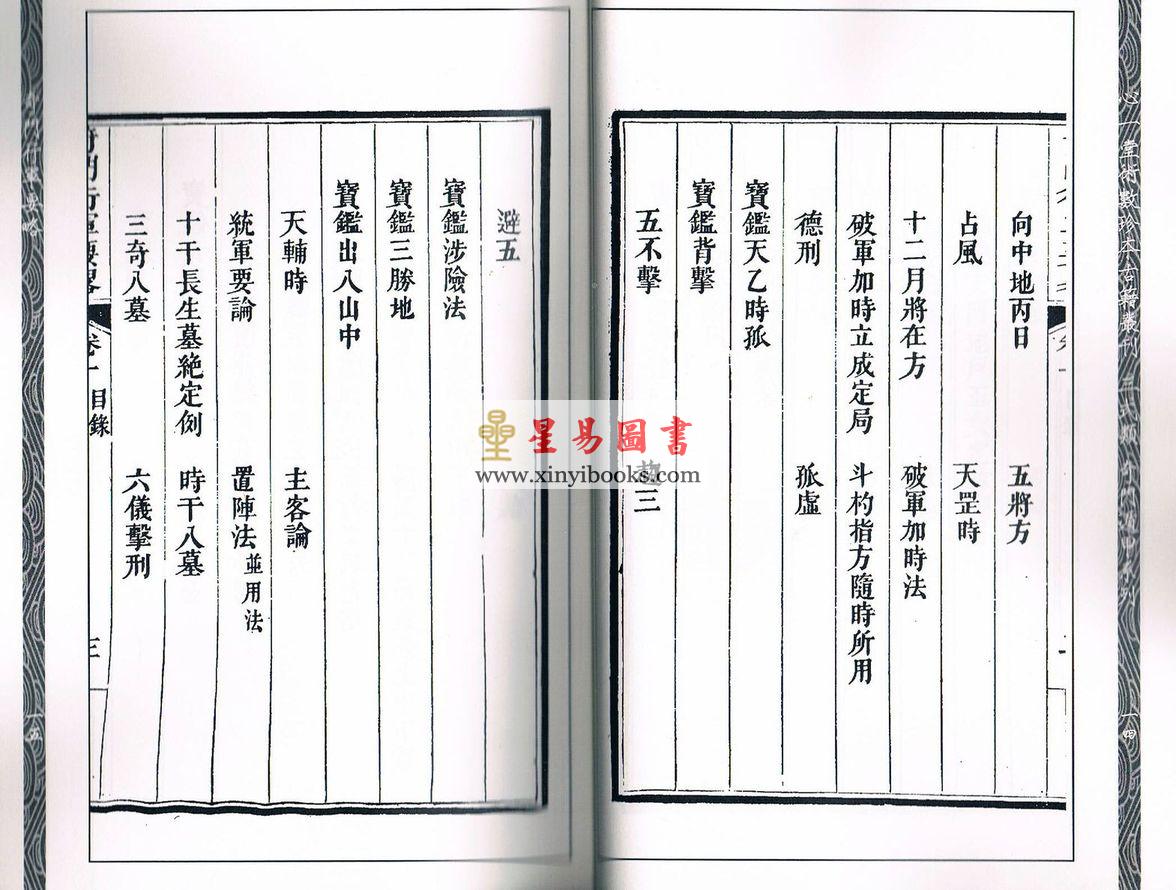 心一堂術數珍本古籍叢刊 三式類 奇門遁甲系列
一四
向中地丙日 五將方
占風 天罡時
十二月將在方 破軍加時法
破軍加時立成定局 斗杓指方隨時所用
德刑 孤虛
寶鑑天乙時孤
寶鑑背擊
五不擊 趨三
避五
寶鑑涉險法
寶鑑三勝地
寶鑑出入山中
天輔時 主客論
統軍要論 置陣法並用法
十干長生墓絕定例 時干入墓
三奇入墓 六儀擊刑
奇門行軍要略 卷一 目錄 三
奇門行軍要略
一五
星易圖書
www.xinyibooks.com